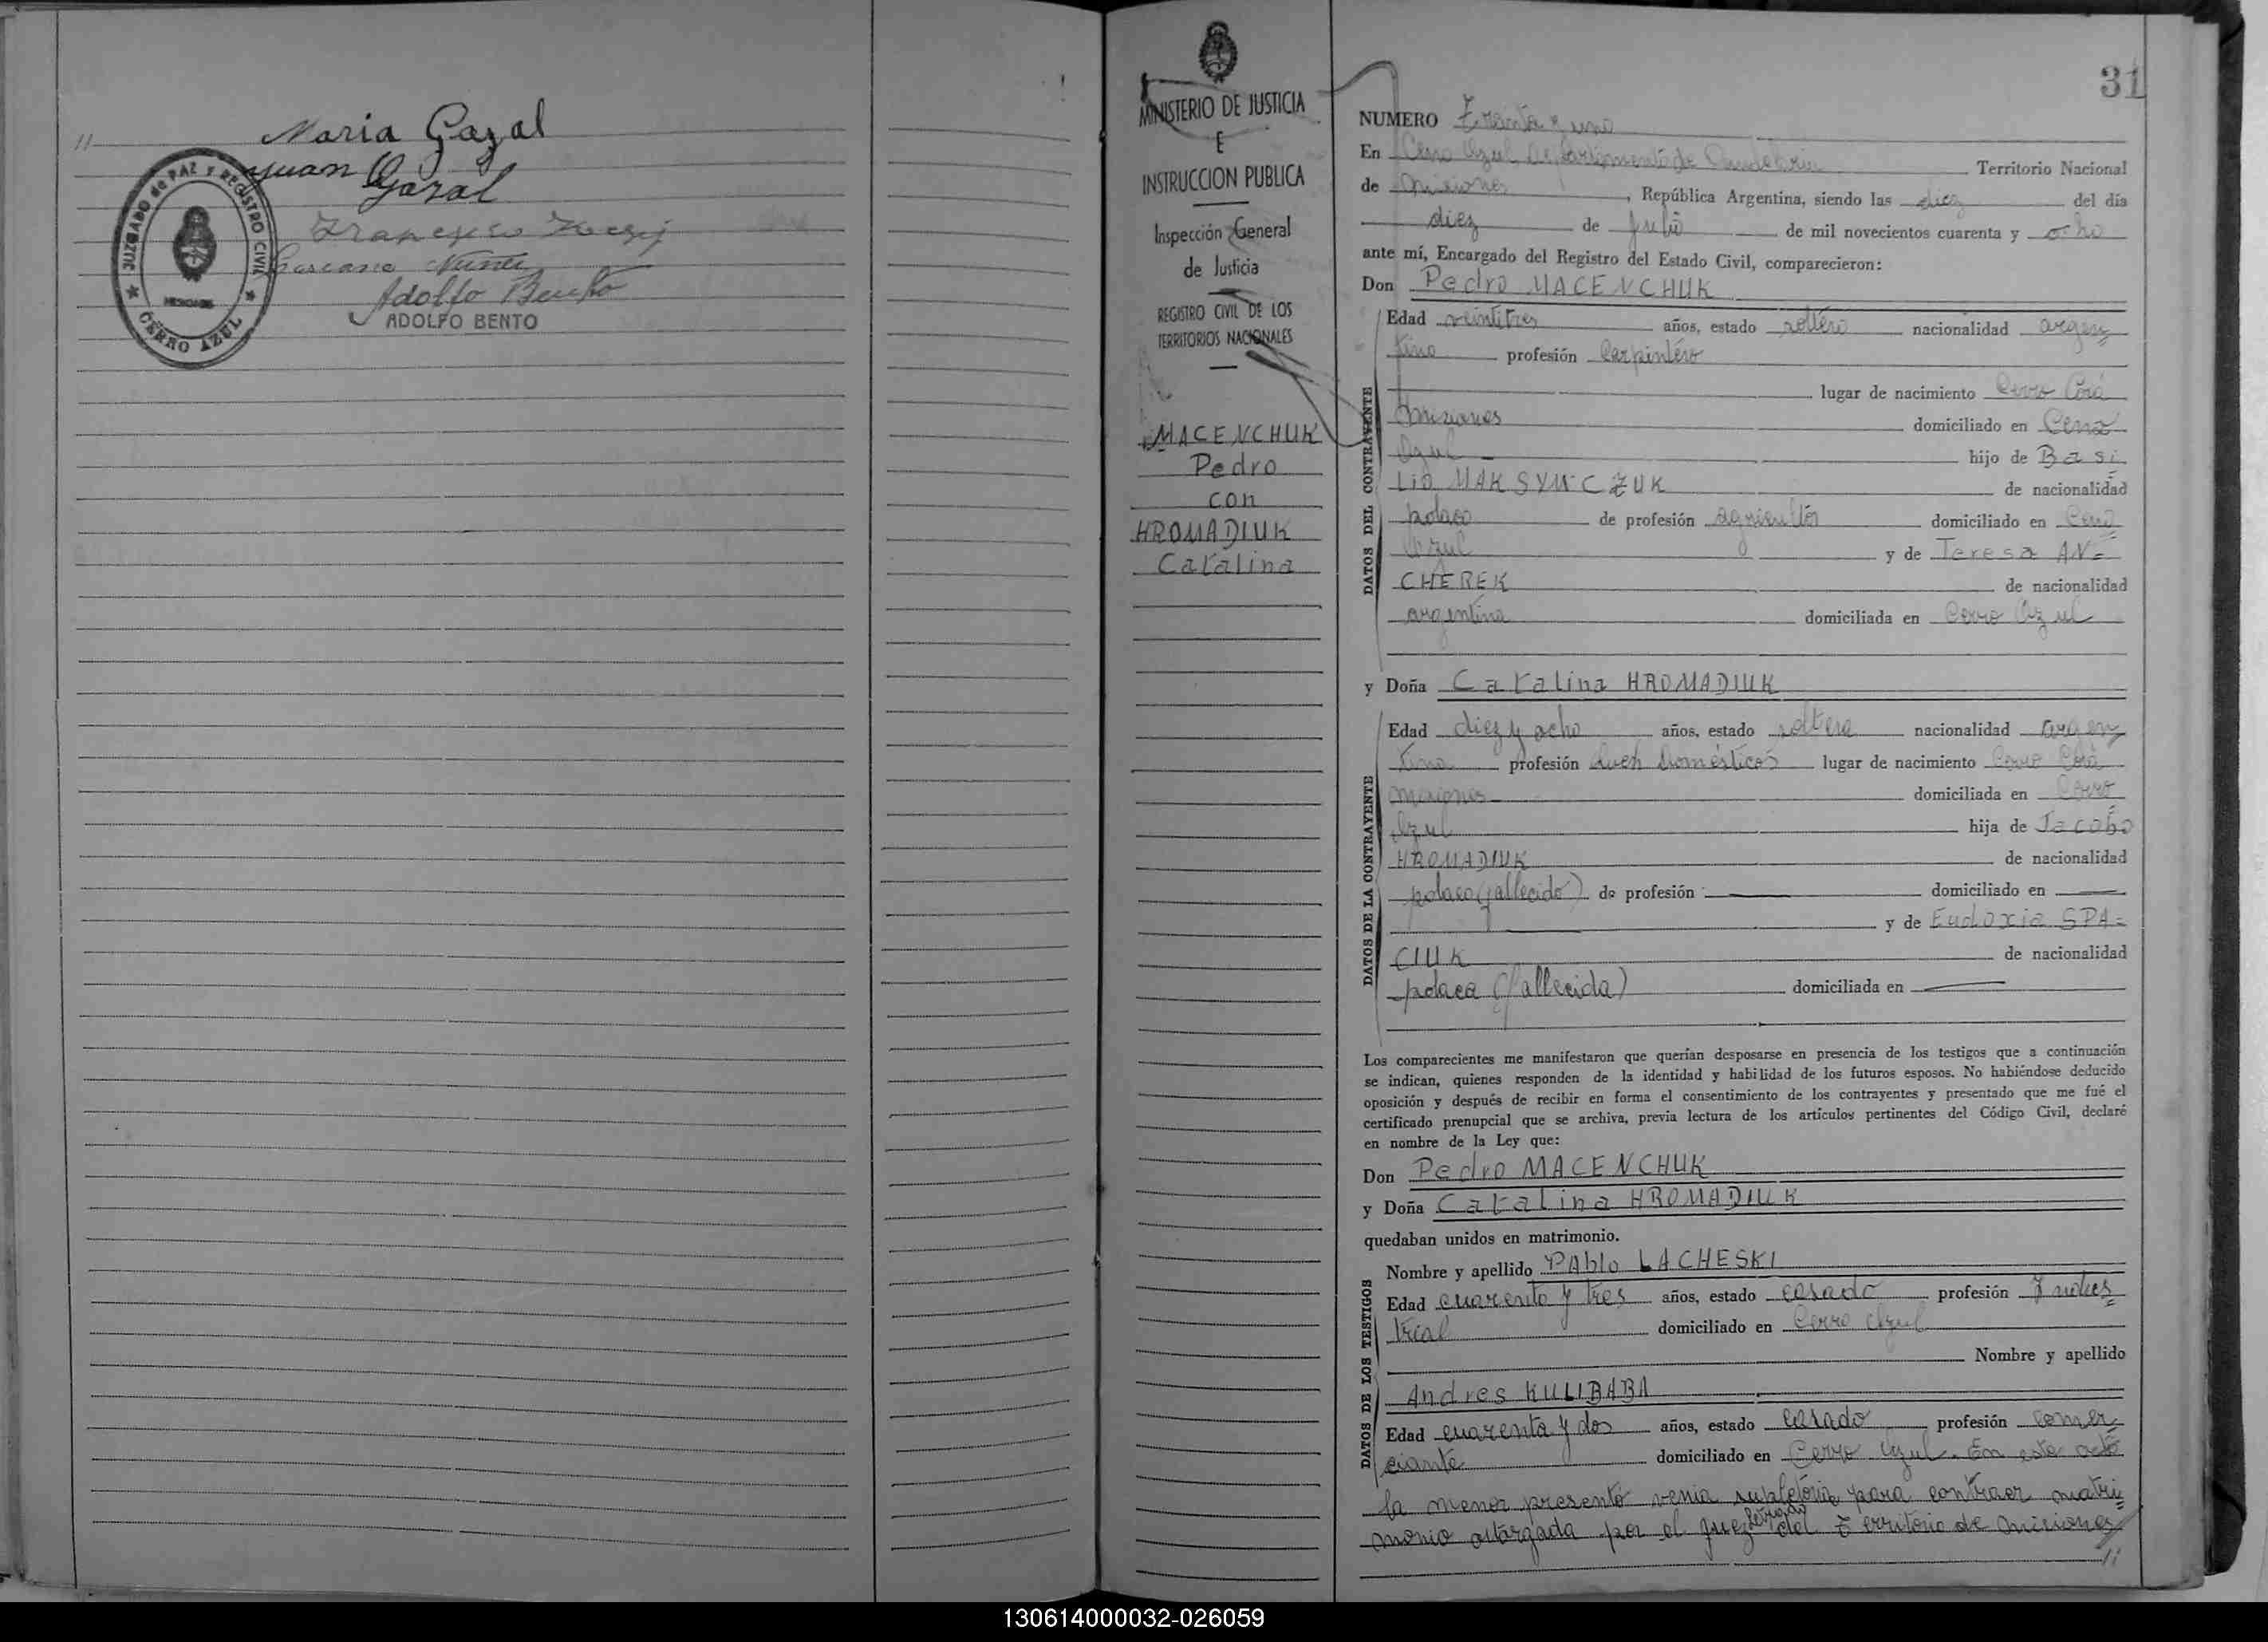 //
Maria Gazal
Juan Gazal
Francisco
Nuñez
Adolfo Bento
ADOLFO BENTO
JUZGADO de PAZ Y REGISTRO CIVIL
MISIONES
★ CERRO AZUL ★
MINISTERIO DE JUSTICIA
E
INSTRUCCION PUBLICA
Inspección General
de Justicia
REGISTRO CIVIL DE LOS
TERRITORIOS NACIONALES
MACENCHUK
Pedro
con
HROMADIUK
Catalina
31
NUMERO Treinta y uno
En Cerro Azul Departamento de Candelaria Territorio Nacional
de Misiones, República Argentina, siendo las diez del día
diez de Julio de mil novecientos cuarenta y ocho
ante mí, Encargado del Registro del Estado Civil, comparecieron:
Don Pedro MACENCHUK
DATOS DEL CONTRAYENTE
Edad veintitres años, estado soltero nacionalidad argen=
tino profesión Carpintero
lugar de nacimiento Cerro Corá
Misiones domiciliado en Cerro
Azul hijo de Basi=
lio MAKSYMCZUK de nacionalidad
polaco de profesión agricultor domiciliado en Cerro
Azul y de Teresa AN=
CHEREK de nacionalidad
argentina domiciliada en Cerro Azul
y Doña Catalina HROMADIUK
DATOS DE LA CONTRAYENTE
Edad diez y ocho años, estado soltera nacionalidad argen
tina profesión Queh. Domésticos lugar de nacimiento Cerro Corá
Misiones domiciliada en Cerro
Azul hija de Jacobo
HROMADIUK de nacionalidad
polaco (fallecido) de profesión — domiciliado en —
y de Eudoxia SPA=
CIUK de nacionalidad
polaca (fallecida) domiciliada en —
Los comparecientes me manifestaron que querían desposarse en presencia de los testigos que a continuación
se indican, quienes responden de la identidad y habilidad de los futuros esposos. No habiéndose deducido
oposición y después de recibir en forma el consentimiento de los contrayentes y presentado que me fué el
certificado prenupcial que se archiva, previa lectura de los artículos pertinentes del Código Civil, declaré
en nombre de la Ley que:
Don Pedro MACENCHUK
y Doña Catalina HROMADIUK
quedaban unidos en matrimonio.
DATOS DE LOS TESTIGOS
Nombre y apellido PAblo LACHESKI
Edad cuarenta y tres años, estado casado profesión Indus=
trial domiciliado en Cerro Azul
Nombre y apellido
Andres KULIBABA
Edad cuarenta y dos años, estado casado profesión comer=
ciante domiciliado en Cerro Azul. En este acto
la menor presentó venia supletoria para contraer matri=
monio otorgada por el Juez Letrado del Territorio de Misiones
//
130614000032-026059